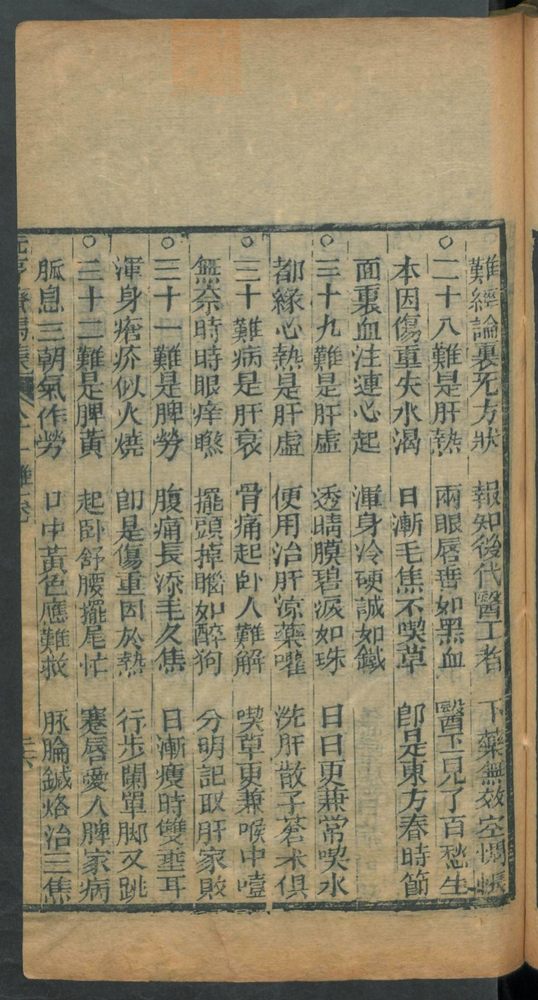 難經論裏死方狀　報知後代醫工者　下藥無效空惆悵
○二十八難是肝熱　兩眼唇垂如黑血　醫工見了百愁生
本因傷重失水渴　日漸毛焦不喫草　即是東方春時節
面裏血注連心起　渾身冷硬誠如鐵
○二十九難是肝虛　透睛膜碧淚如珠　日日更兼常喫水
都緣心熱是肝虛　便用治肝涼藥嚾　洗肝散子蒼朮俱
○三十難病是肝衰　骨痛起卧人難解　喫草更兼喉中噎
無奈時時眼痒瞭　擺頭掉腦如醉狗　分明記取肝家敗
○三十一難是脾勞　腹痛長添毛久焦　日漸瘦時雙垂耳
渾身瘡疥似火燒　即是傷重因於熱　行步闌單脚又跳
○三十二難是脾黃　起卧舒腰擺尾忙　蹇唇愛人脾家病
脈息三朝氣作勞　口中黃色應難救　脉腧鍼烙治三焦
元亨療馬集